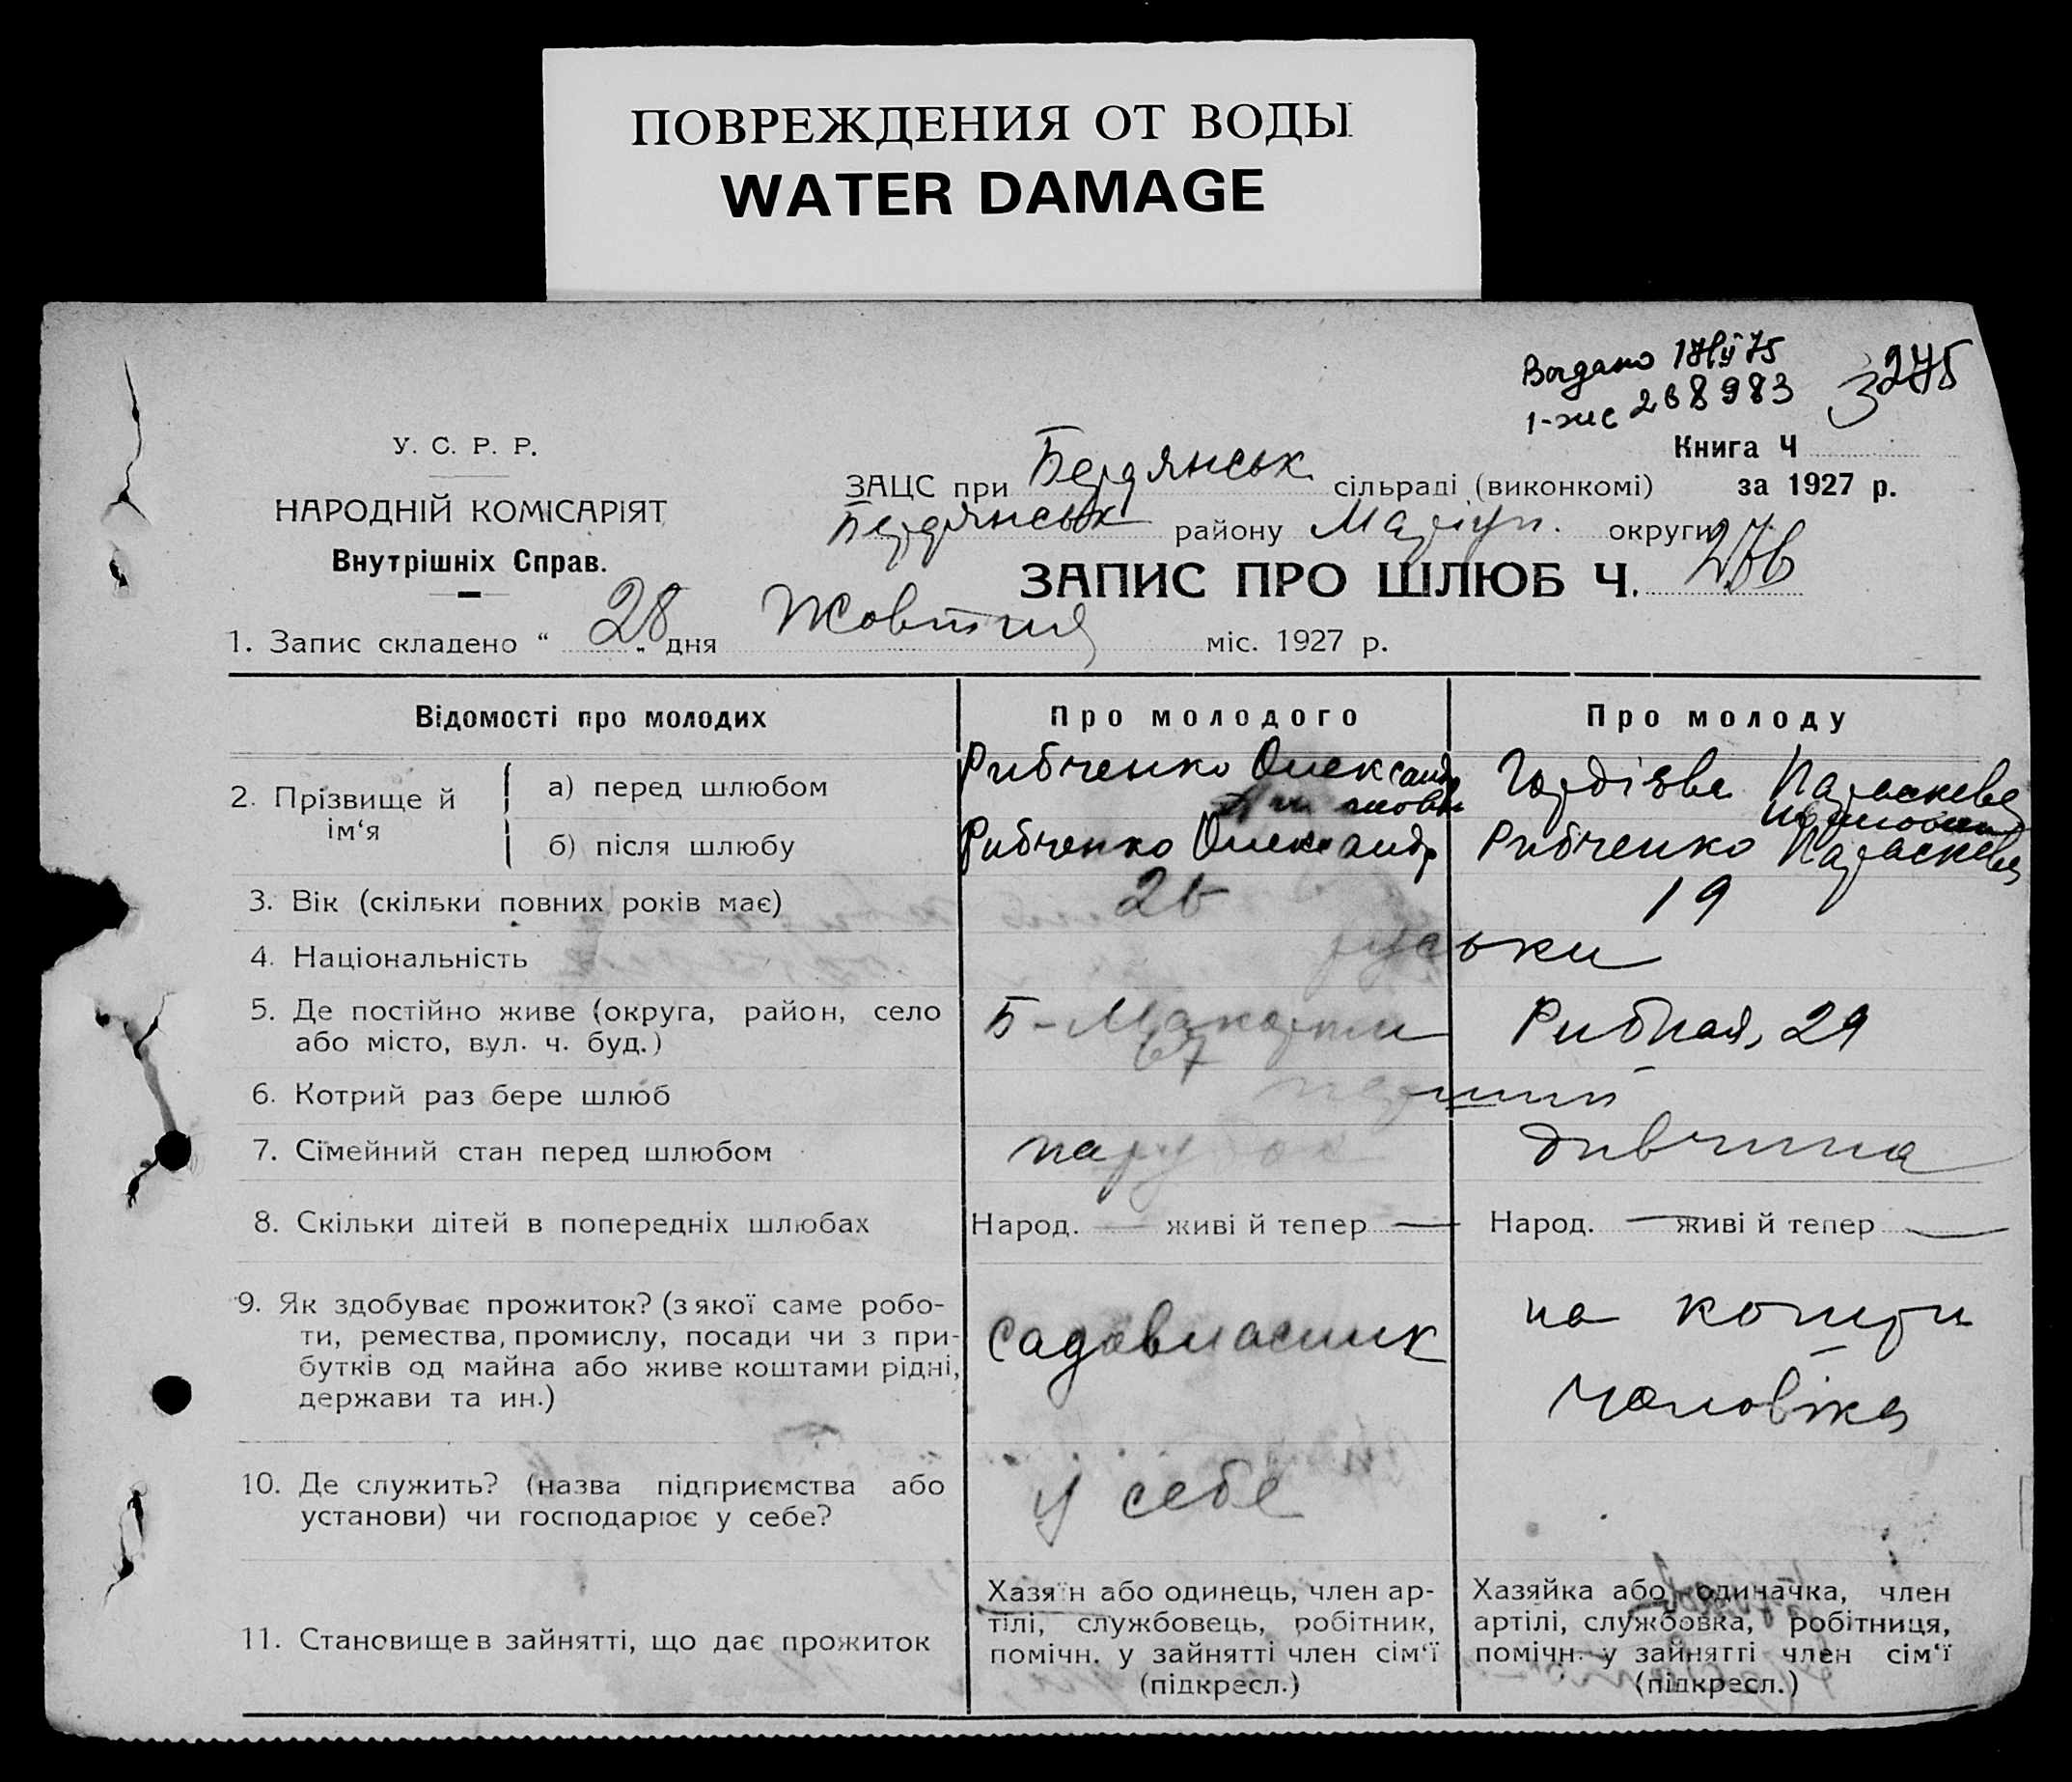 ПОВРЕЖДЕНИЯ ОТ ВОДЫ
WATER DAMAGE
268983
3275
У. С. Р. Р.
НАРОДНІЙ КОМІСАРІЯТ
Внутрішніх Справ.
Книга Ч
за 1927 р.
ЗАЦС при Бердянськ сільраді (виконкомі)
Бердянськ району Маріуп. округи
ЗАПИС ПРО ШЛЮБ Ч. 276
1. Запис складено “ 28 „ дня Жовтня міс. 1927 р.
Відомості про молодих
Про молодого
Про молоду
2. Прізвище й ім‘я
а) перед шлюбом
Рибченко Олександр
Гордієва Параскева
б) після шлюбу
Рибченко Олександр
Рибченко Параскева
3. Вік (скільки повних років має)
26
19
4. Національність
руськи
5. Де постійно живе (округа, район, село
або місто, вул. ч. буд.)
Б-Макорти
67
Рибная, 29
6. Котрий раз бере шлюб
перший
7. Сімейний стан перед шлюбом
парубок
дивчина
8. Скільки дітей в попередніх шлюбах
Народ. — живі й тепер —
Народ. — живі й тепер —
9. Як здобуває прожиток? (з якої саме робо-
ти, ремества, промислу, посади чи з при-
бутків од майна або живе коштами рідні,
держави та ин.)
садовласник
на кошти
чоловіка
10. Де служить? (назва підприємства або
установи) чи господарює у себе?
у себе
11. Становище в зайнятті, що дає прожиток
Хазяїн або одинець, член ар-
тілі, службовець, робітник,
помічн. у зайнятті член сім‘ї
(підкресл.)
Хазяйка або одиначка, член
артілі, службовка, робітниця,
помічн. у зайнятті член сім‘ї
(підкресл.)